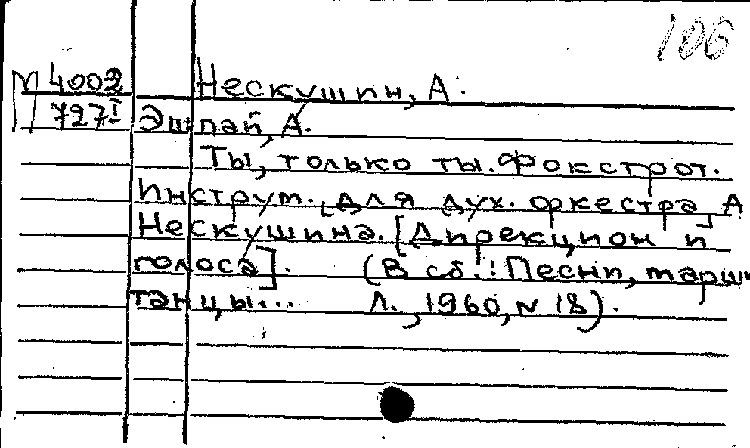 106
М 4002 Нескушин, А.
727I Эшпай, А.
Ты, только ты. Фокстрот.
Инструм. [для дух. оркестра] А
Нескушина. [Дирекцион и
голоса]. (В сб.: Песни, марши
танцы... Л., 1960, № 18).